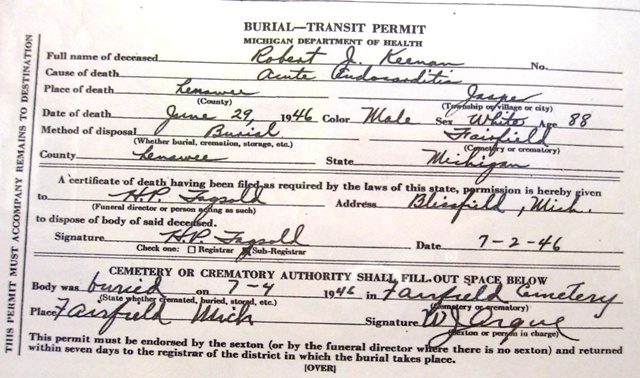 BURIAL—TRANSIT PERMIT
MICHIGAN DEPARTMENT OF HEALTH
Full name of deceased Robert J. Keenan No.
Cause of death Acute Endocarditis
Place of death Lenawee Jasper
(County) (Township or village or city)
Date of death June 29, 1946 Color Male Sex White Age 88
Method of disposal Burial Fairfield
(Whether burial, cremation, storage, etc.) (Cemetery or crematory)
County Lenawee State Michigan
A certificate of death having been filed as required by the laws of this state, permission is hereby given
to H.P. Tagsold Address Blissfield, Mich.
(Funeral director or person acting as such)
to dispose of body of said deceased.
Signature H.P. Tagsold Date 7-2-46
Check one: Registrar Sub-Registrar
CEMETERY OR CREMATORY AUTHORITY SHALL FILL OUT SPACE BELOW
Body was buried on 7-4 1946 in Fairfield Cemetery
(State whether cremated, buried, stored, etc.) (Cemetery or crematory)
Place Fairfield Mich Signature
(Sexton or person in charge)
This permit must be endorsed by the sexton (or by the funeral director where there is no sexton) and returned
within seven days to the registrar of the district in which the burial takes place.
[OVER]
THIS PERMIT MUST ACCOMPANY REMAINS TO DESTINATION